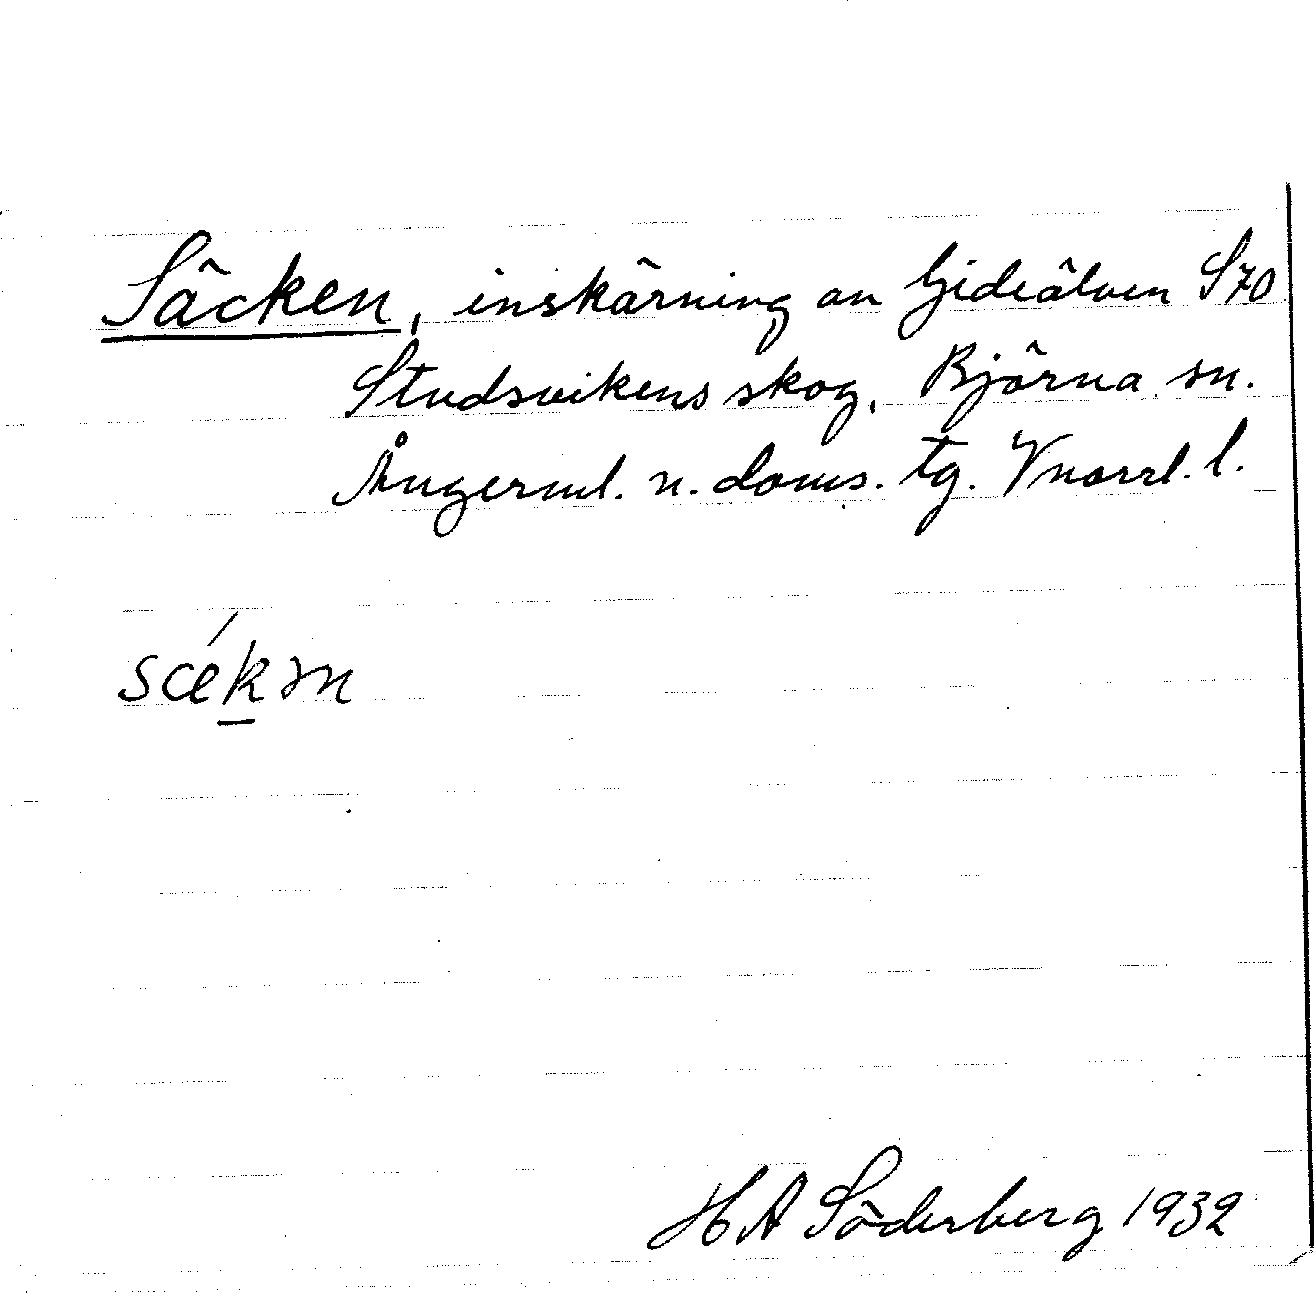 Säcken, inskärning av Gideälven SÖ
Studsvikens skog, Björna sn.
Ångerml. n. doms. tg. Vnorrl. l.
sǽkən
H A Söderberg 1932